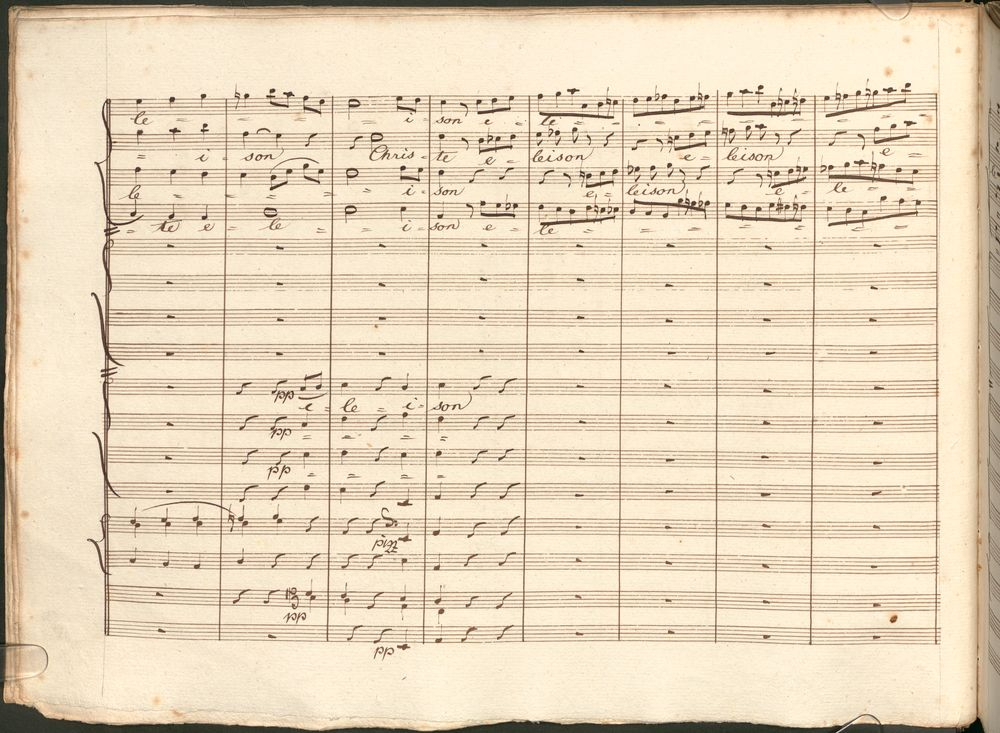 le = = = = i - son e - le = = = =
= i - son Chris - te e = leison e - leison e =
le = = = = i - son e - leison e - le =
= te e - le = = i - son e - le = = = =
pp
i - le - i - son
pp = = = =
pp = = = =
pizz
pp
pp